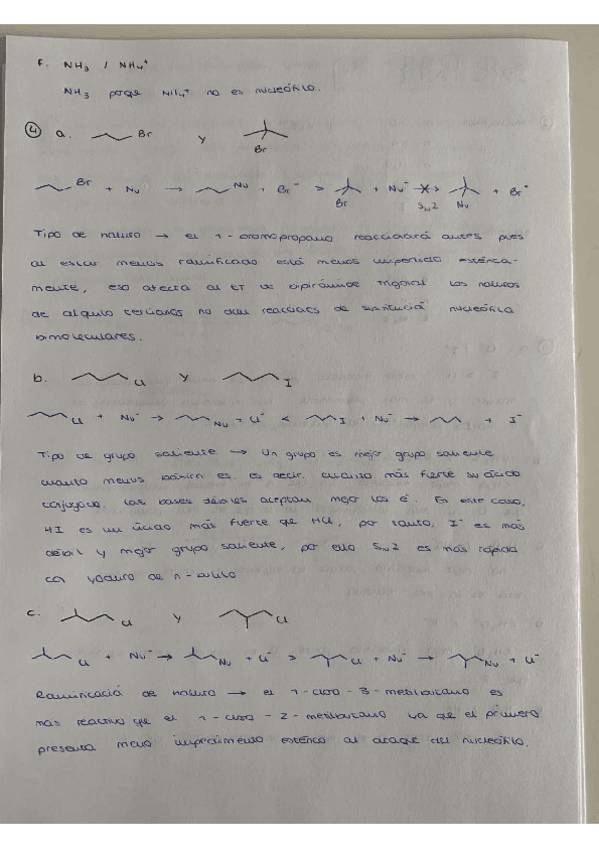 f. NH3 / NH4+
NH3 porque NH4+ no es nucleófilo.
④ a. Br y Br
Br + Nu → Nu + Br- > Br + Nu- → SN2 Nu + Br-
Tipo de haluro → el 1-bromopropano reaccionará antes pues
al estar menos ramificado está menos impedido estérica-
mente, eso afecta al ET de bipirámide trigonal. Los haluros
de alquilo terciarios no dan reacciones de sustitución nucleófila
bimoleculares.
b. Cl y I
Cl + Nu- → Nu + Cl- < I + Nu- → + I-
Tipo de grupo saliente → Un grupo es mejor grupo saliente
cuanto menos básico es, es decir, cuanto más fuerte su ácido
conjugado. Las bases débiles aceptan mejor los é. En este caso,
HI es un ácido más fuerte que HCl, por tanto, I- es más
débil y mejor grupo saliente, por ello SN2 es más rápida
con yoduro de n-butilo
c. Cl y Cl
Cl + Nu- → Nu + Cl- > Cl + Nu- → Nu + Cl-
Ramificación de haluro → el 1-cloro-3-metilbutano es
más reactivo que el 1-cloro-2-metilbutano ya que el primero
presenta menos impedimento estérico al ataque del nucleófilo.